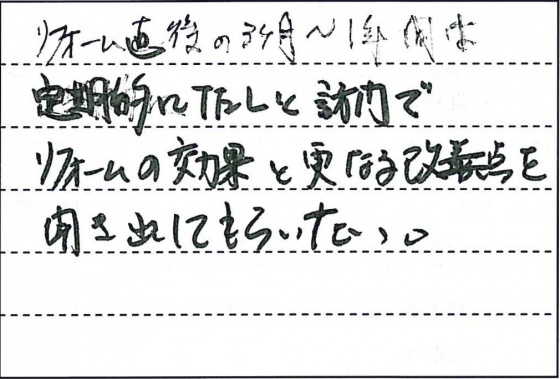 リフォーム直後の3ヶ月～1年間は
定期的にTELと訪問で
リフォームの効果と更なる改善点を
聞き出してもらいたい。